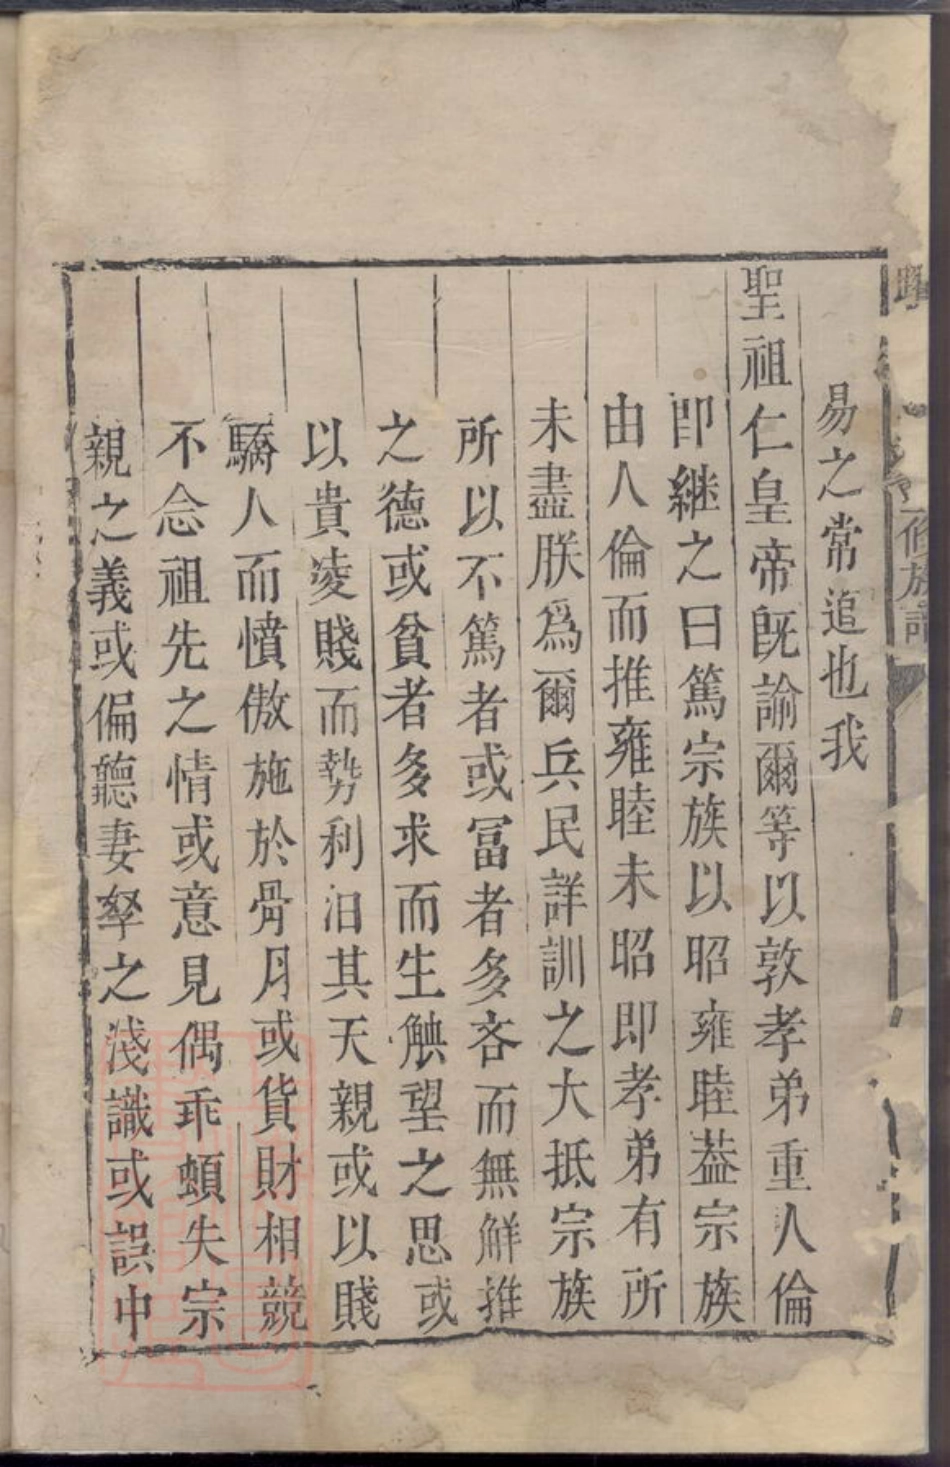 易之常追也我
聖祖仁皇帝既諭爾等以敦孝弟重人倫
即継之曰篤宗族以昭雍睦葢宗族
由人倫而推雍睦未昭即孝弟有所
未盡朕爲爾兵民詳訓之大抵宗族
所以不篤者或冨者多吝而無鮮推
之德或貧者多求而生觖望之思或
以貴凌賤而勢利汨其天親或以賤
驕人而憤傲施於骨月或貨財相競
不念祖先之情或意見偶乖頓失宗
親之義或偏聽妻孥之淺識或誤中
修族譜